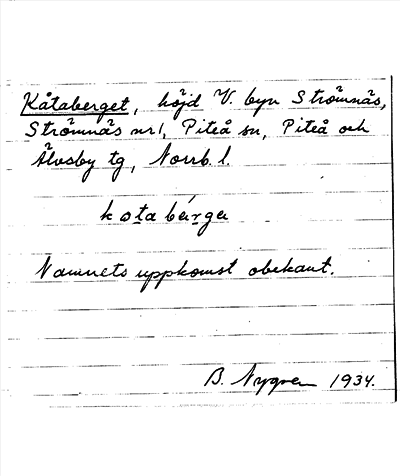 Kåtaberget, höjd V. byn Strömnäs,
Strömnäs nr 1, Piteå sn, Piteå och
Älvsby tg, Norrb. l.
kota bérga
Namnets uppkomst obekant.
B. Nygren 1934.